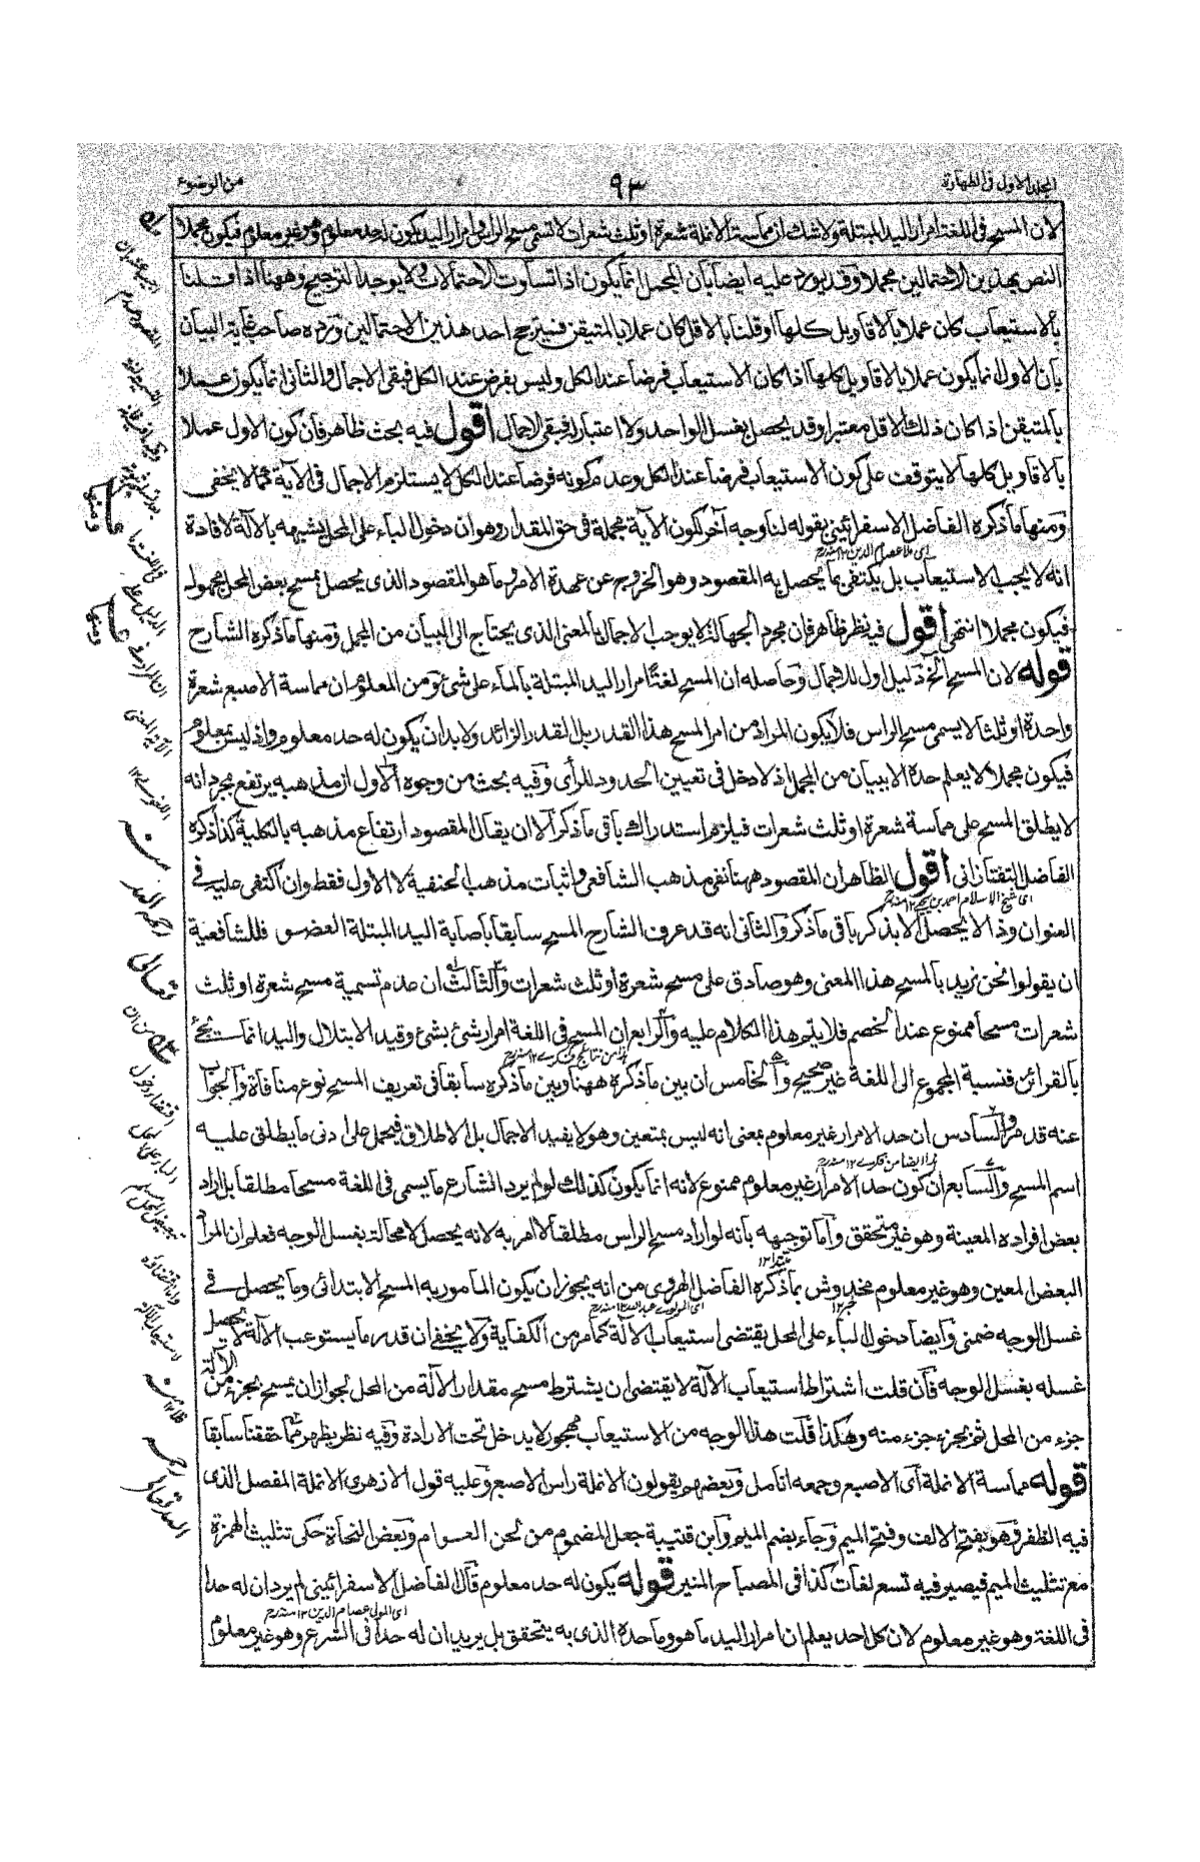 المجلد الاول فى الطهارة
٩٣
من الوضوء
لان المسح فى اللغة امرار اليد المبتلة ولا شك ان مماسة الانملة شعرة او ثلث شعرات لا تسمى مسح الراس وامرار اليد يكون له حد معلوم وهو غير معلوم فيكون مجملا
النص بهذين الاحتمالين مجملا وقد يورد عليه ايضا بان المجمل انما يكون اذا تساوت الاحتمالات ولا يوجد الترجيح وههنا اذا قلنا
بالاستيعاب كان عملا بالاقاويل كلها او قلنا بالاقل كان عملا بالمتيقن فيترجح احد هذين الاحتمالين ورده صاحب غاية البيان
بان الاول انما يكون عملا بالاقاويل كلها اذا كان الاستيعاب فرضا عند الكل وليس بفرض عند الكل فبقى الاجمال والثانى انما يكون عملا
بالمتيقن اذا كان ذلك الاقل معتبرا وقد يحصل بغسل الواحد ولا اعتبار له فبقى الاجمال اقول فيه بحث ظاهر فان كون الاول عملا
بالاقاويل كلها لا يتوقف على كون الاستيعاب فرضا عند الكل وعدم كونه فرضا عند الكل لا يستلزم الاجمال فى الآية كما لا يخفى
ومنها ما ذكره الفاضل الاسفرائينى بقوله لنا وجه آخر لكون الآية مجملة فى حق المقدار وهو ان دخول الباء على المحل يشبهه بالآلة لافادة
اى ملا عصام الدين ١٢ منه رح
انه لا يجب الاستيعاب بل يكتفى بما يحصل به المقصود وهو الخروج عن عهدة الامر وما هو المقصود الذى يحصل بمسح بعض المحل مجهول
فيكون مجملا انتهى اقول فيه نظر ظاهر فان مجرد الجهالة لا يوجب الاجمال بالمعنى الذى يحتاج الى البيان من المجمل ومنها ما ذكره الشارح
قوله لان المسح الخ دليل اول للاجمال وحاصله ان المسح لغة امرار اليد المبتلة بالماء على شئ ومن المعلوم ان مماسة الاصبع شعرة
واحدة او ثلثا لا يسمى مسح الراس فلا يكون المراد من امر المسح هذا القدر بل القدر الزائد ولا بد ان يكون له حد معلوم واذ ليس بمعلوم
فيكون مجملا لا يعلم حده الا ببيان من المجمل اذ لا دخل فى تعيين الحدود للرأى وفيه بحث من وجوه الاول ان مذهبه يرتفع بمجرد انه
لا يطلق المسح على مماسة شعرة او ثلث شعرات فيلزم استدراك باقى ما ذكر الا ان يقال المقصود ارتفاع مذهبه بالكلية كذا ذكره
الفاضل التفتازانى اقول الظاهر ان المقصود ههنا نفى مذهب الشافعى واثبات مذهب الحنفية لا الاول فقط وان اكتفى عليه فى
اى شيخ الاسلام احمد بن يحيى ١٢ منه رح
العنوان وذا لا يحصل الا بذكر باقى ما ذكر والثانى انه قد عرف الشارح المسح سابقا باصابة اليد المبتلة العضو فللشافعية
ان يقولوا نحن نريد بالمسح هذا المعنى وهو صادق على مسح شعرة او ثلث شعرات والثالث ان عدم تسمية مسح شعرة او ثلث
شعرات مسحا ممنوع عند الخصم فلا يتم هذا الكلام عليه والرابع ان المسح فى اللغة امرار شئ بشئ وقيد الابتلال واليد انما يستجئ
هذا من نتائج فكرى ١٢ منه رح
بالقرائن فنسبة المجموع الى اللغة غير صحيح والخامس ان بين ما ذكره ههنا وبين ما ذكره سابقا فى تعريف المسح نوع منافاة والجواب
عنه قد مر والسادس ان حد الامرار غير معلوم بمعنى انه ليس بمتعين وهو لا يفيد الاجمال بل الاطلاق فيحمل على ادنى ما يطلق عليه
هذا ايضا من فكرى ١٢ منه رح
اسم المسح والسابع ان كون حد الامرار غير معلوم ممنوع لانه انما يكون كذلك لو لم يرد الشارع ما يسمى فى اللغة مسحا مطلقا بل اراد
بعض افراده المعينة وهو غير متحقق واما توجيهه بانه لو اراد مسح الراس مطلقا لا امر به لانه يحصل لا محالة بغسل الوجه فعلم ان المراد
مبتدا ١٢
البعض المعين وهو غير معلوم مخدوش بما ذكره الفاضل الهروى من انه يجوز ان يكون المامور به المسح الابتدائى وما يحصل فى
خبر ١٢
غسل الوجه ضمنى وايضا دخول الباء على المحل يقتضى استيعاب الآلة كما مر من الكفاية ولا يخفى ان قدر ما يستوعب الآلة لا يحصل
غسله بغسل الوجه فان قلت اشتراط استيعاب الآلة لا يقتضى ان يشترط مسح مقدار الآلة من المحل لجواز ان يمسح بجزء من الآلة
جزء من المحل ثم بجزء جزء منه وهكذا قلت هذا الوجه من الاستيعاب مهجور لا يدخل تحت الارادة وفيه نظر يظهر مما حققنا سابقا
قوله مماسة الانملة اى الاصبع وجمعه انامل وبعضهم يقولون الانملة راس الاصبع وعليه قول الازهرى الانملة المفصل الذى
فيه الظفر وهو بفتح الالف وفتح الميم وجاء بضم الميم وابن قتيبة جعل المضموم من لحن العوام وبعض النحاة حكى تثليث الهمزة
مع تثليث الميم فيصير فيه تسع لغات كذا فى المصباح المنير قوله يكون له حد معلوم قال الفاضل الاسفرائينى لم يرد ان له حدا
اى المولى عصام الدين ١٢ منه رح
فى اللغة وهو غير معلوم لان كل احد يعلم ان امرار اليد ما هو وما حده الذى به يتحقق بل يريد ان له حدا فى الشرع وهو غير معلوم